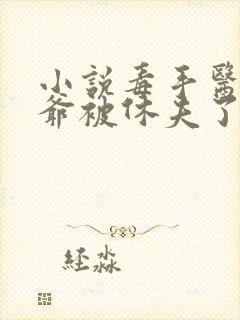 小說毒手醫
爺被休夫了
經淼